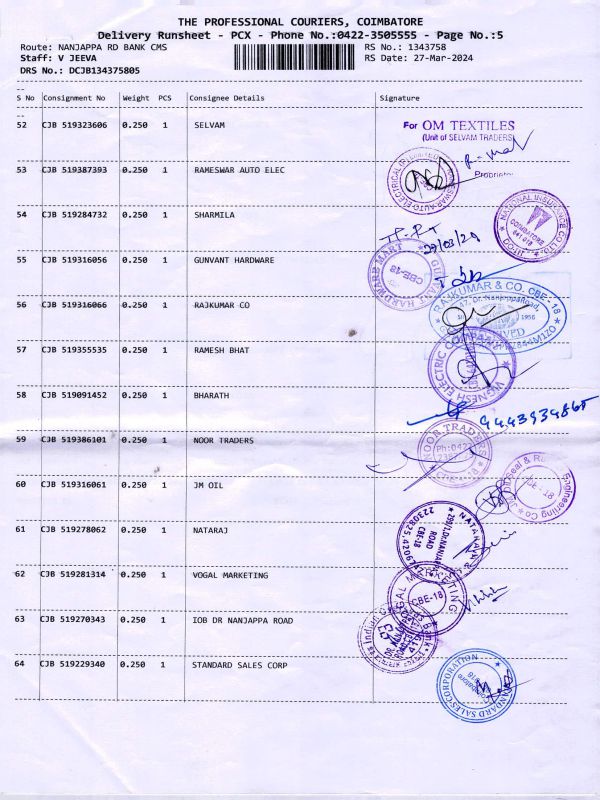 THE PROFESSIONAL COURIERS, COIMBATORE
Delivery Runsheet - PCX - Phone No.:0422-3505555 - Page No.:5
Route: NANJAPPA RD BANK CMS RS No.: 1343758
Staff: V JEEVA RS Date: 27-Mar-2024
DRS No.: DCJB134375805
--
S No Consignment No Weight PCS Consignee Details Signature
--
52 CJB 519323606 0.250 1 SELVAM
For OM TEXTILES
(Unit of SELVAM TRADERS)
Proprietor
53 CJB 519387393 0.250 1 RAMESWAR AUTO ELEC
54 CJB 519284732 0.250 1 SHARMILA
NATIONAL INSURANCE CO.LTD.
COIMBATORE
641 018
55 CJB 519316056 0.250 1 GUNVANT HARDWARE
GUNVANT HARDWARE MART
CBE-18
56 CJB 519316066 0.250 1 RAJKUMAR CO
RAJKUMAR & CO. CBE - 18
47, Dr. Nanjappa Road,
1956
57 CJB 519355535 0.250 1 RAMESH BHAT
VIGNESH ELECTRIC COMPANY
58 CJB 519091452 0.250 1 BHARATH
9443934868
59 CJB 519386101 0.250 1 NOOR TRADERS
NOOR TRADERS
Ph:0422
CBE-18
60 CJB 519316061 0.250 1 JM OIL
JM Oil Seal & Engineering Co
61 CJB 519278062 0.250 1 NATARAJ
ROAD
CBE-18
62 CJB 519281314 0.250 1 VOGAL MARKETING
MARKETING
CBE-18
63 CJB 519270343 0.250 1 IOB DR NANJAPPA ROAD
64 CJB 519229340 0.250 1 STANDARD SALES CORP
STANDARD SALES CORPORATION